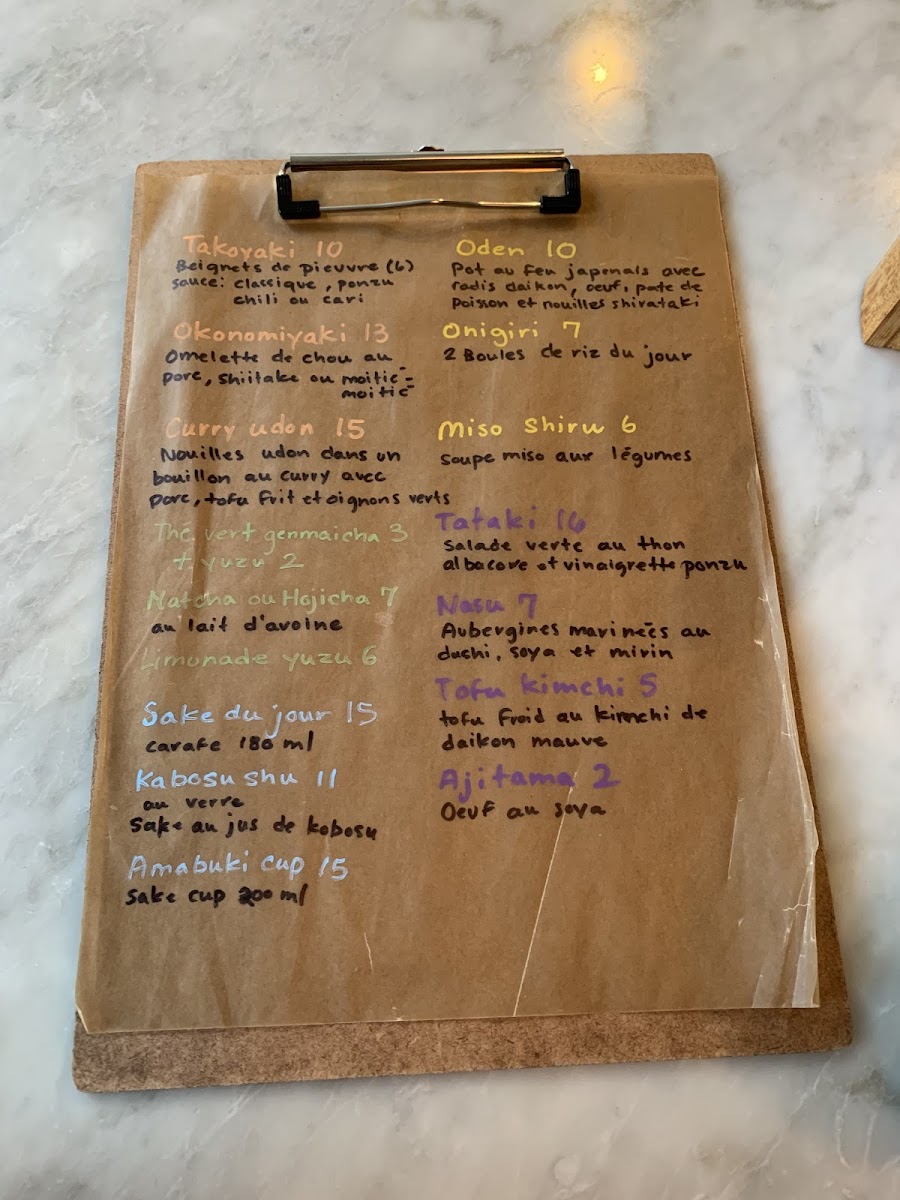 Takoyaki 10
Beignets de pieuvre (6)
sauce: classique, ponzu
chili ou cari
Okonomiyaki 13
Omelette de chou au
porc, shiitake ou moitié-
moitié
Curry udon 15
Nouilles udon dans un
bouillon au curry avec
porc, tofu frit et oignons verts
Thé vert genmaicha 3
+ yuzu 2
Matcha ou Hojicha 7
au lait d'avoine
Limonade yuzu 6
Sake du jour 15
carafe 180 ml
Kabosu shu 11
au verre
Sake au jus de kobosu
Amabuki cup 15
Sake cup 200 ml
Oden 10
Pot au feu japonais avec
radis daikon, oeuf, pate de
poisson et nouilles shirataki
Onigiri 7
2 Boules de riz du jour
Miso Shiru 6
soupe miso aux légumes
Tataki 16
Salade verte au thon
albacore et vinaigrette ponzu
Nasu 7
Aubergines marinées au
dashi, soya et mirin
Tofu kimchi 5
tofu froid au kimchi de
daikon mauve
Ajitama 2
Oeuf au soya